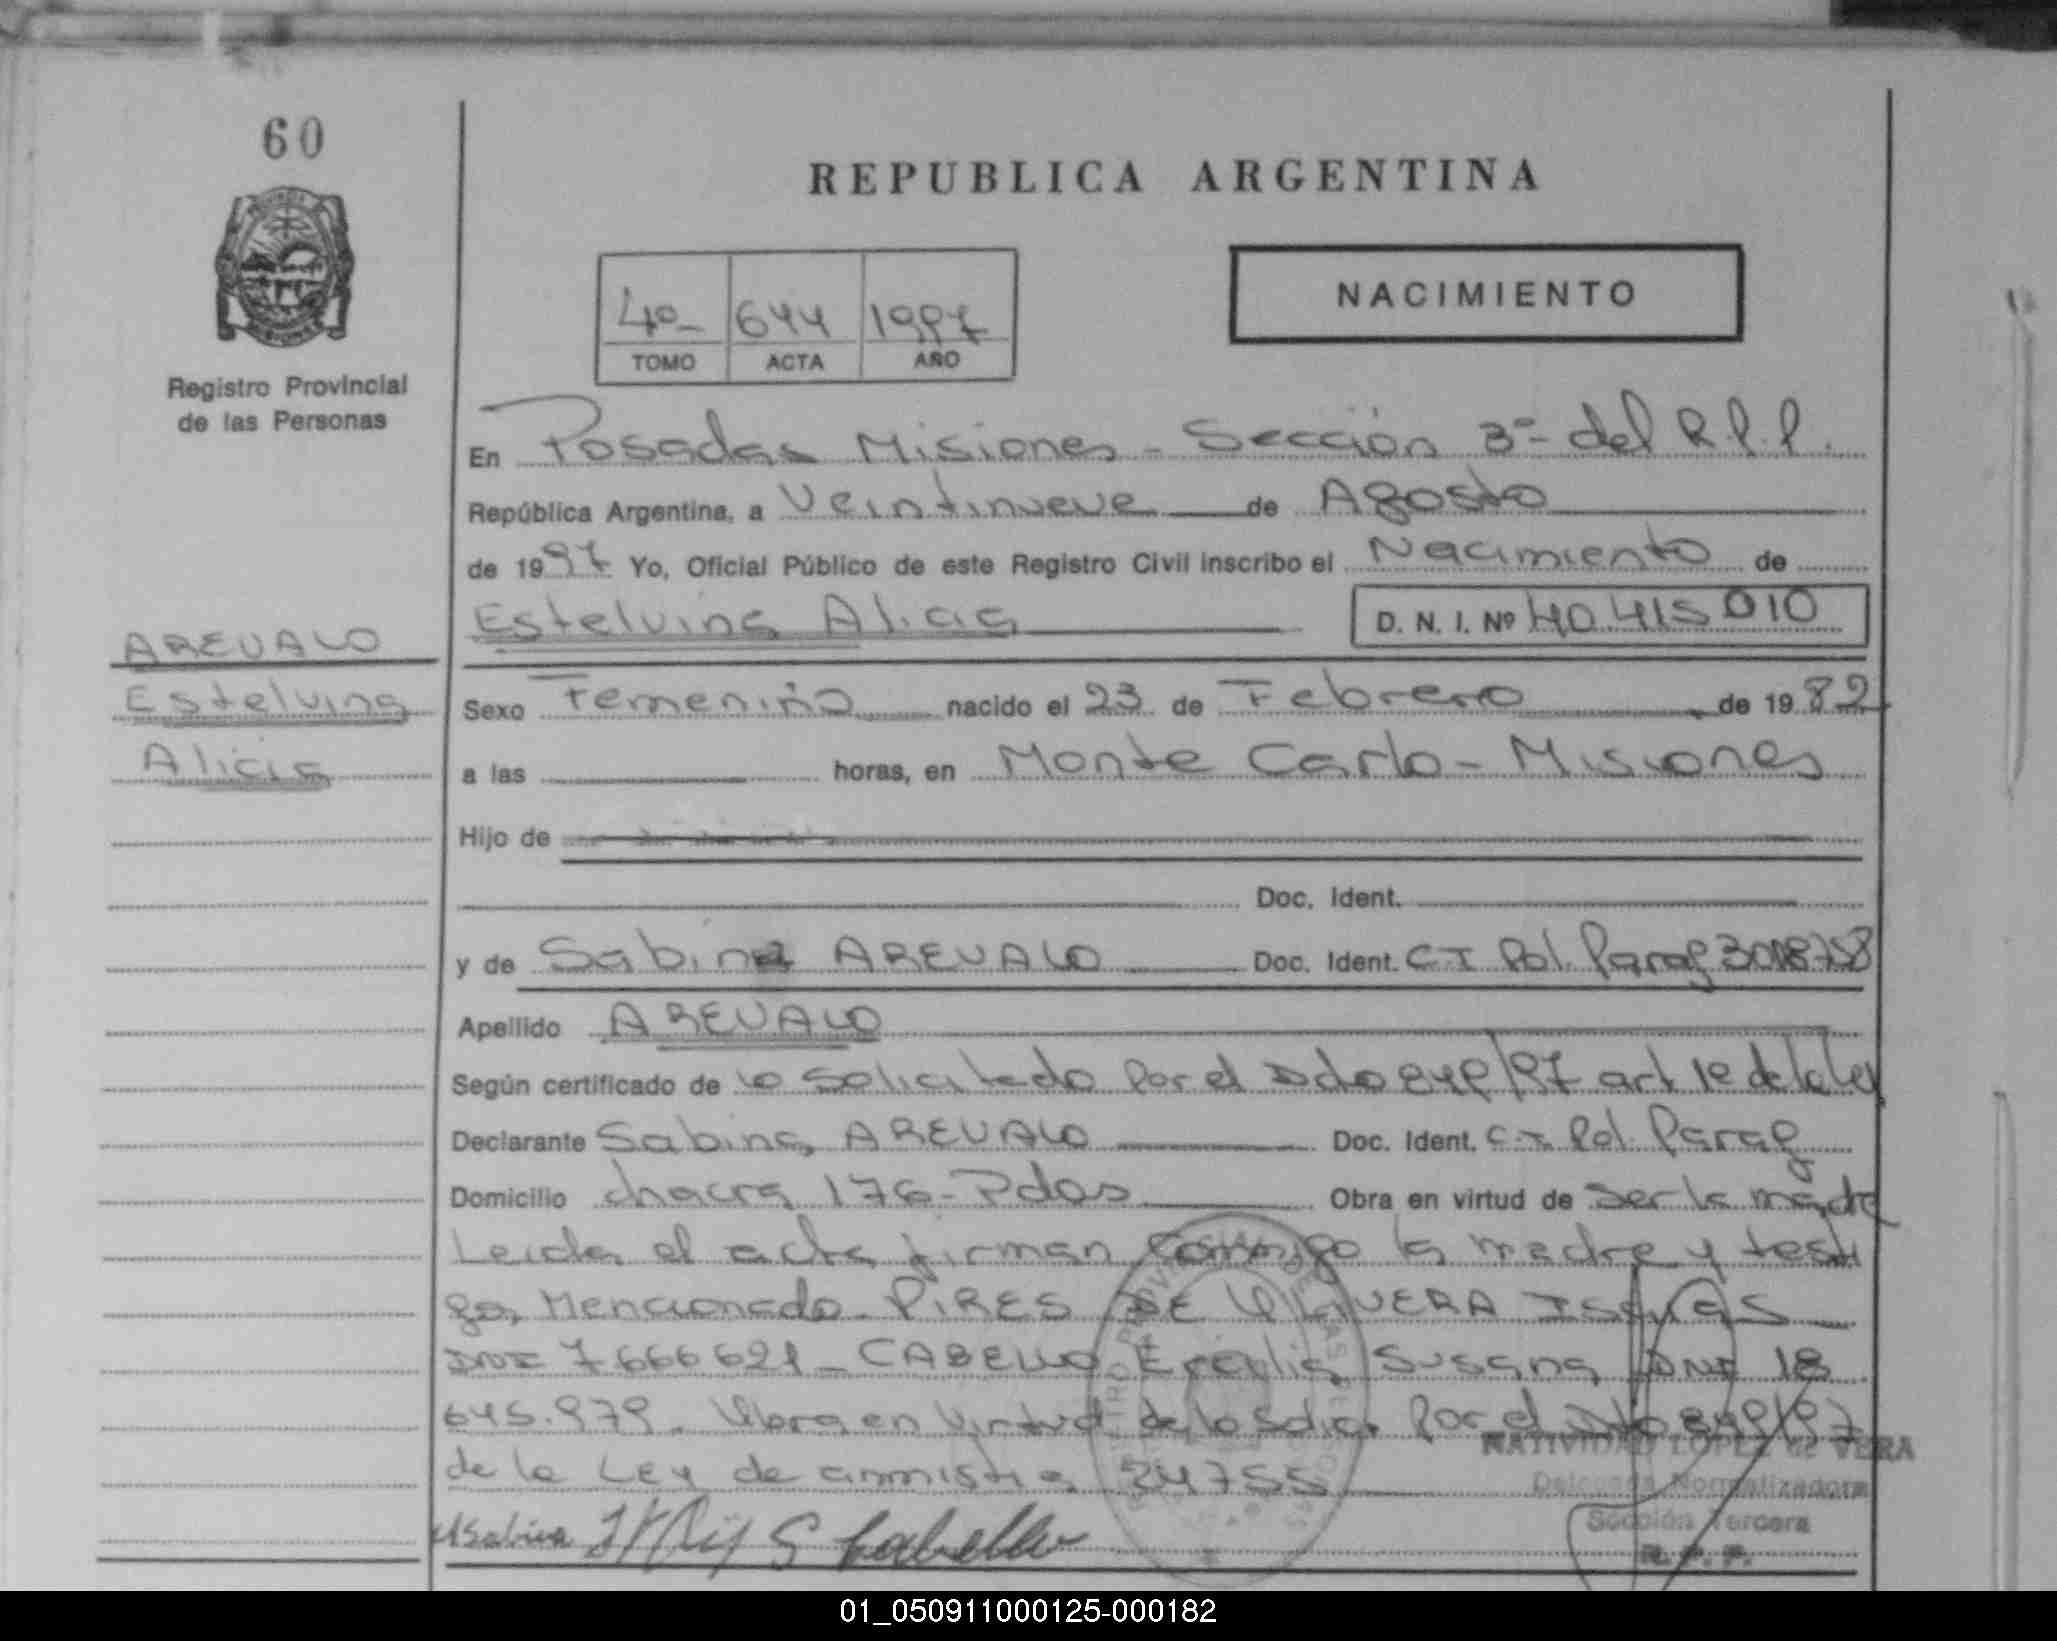 60
REPUBLICA ARGENTINA
NACIMIENTO
4º- 644 1997
TOMO ACTA AÑO
Registro Provincial
de las Personas
En Posadas Misiones - Sección 3ª- del R.P.P.
República Argentina, a Veintinueve de Agosto
de 1997 Yo, Oficial Público de este Registro Civil inscribo el Nacimiento de
Estelvina Alicia D. N. I. Nº 40.415.010
AREVALO
Estelvina
Alicia
Sexo Femenino nacido el 23 de Febrero de 1982
a las horas, en Monte Carlo - Misiones
Hijo de
Doc. Ident.
y de Sabina AREVALO Doc. Ident. C.I Pol. Parag 3018758
Apellido AREVALO
Según certificado de lo solicitado por el Dcto 849/97 art 1º de la Ley
Declarante Sabina AREVALO Doc. Ident. C.I. Pol. Parag
Domicilio chacra 176 - Pdas Obra en virtud de ser la madre
Leida el acta firman conmigo la madre y testi
gos Mencionado - PIRES DE OLIVERA ISAIAS
DNI 7666621 - CABELLO Ercilia Susana DNI 18
645.979. Obra en virtud de lo solic. por el Dcto 849/97
de la LEY de amnistia 24755
NATIVIDAD LOPEZ de VERA
Delegada Normalizadora
Sección Tercera
R. P. P.
Sabina S Cabello
01_050911000125-000182